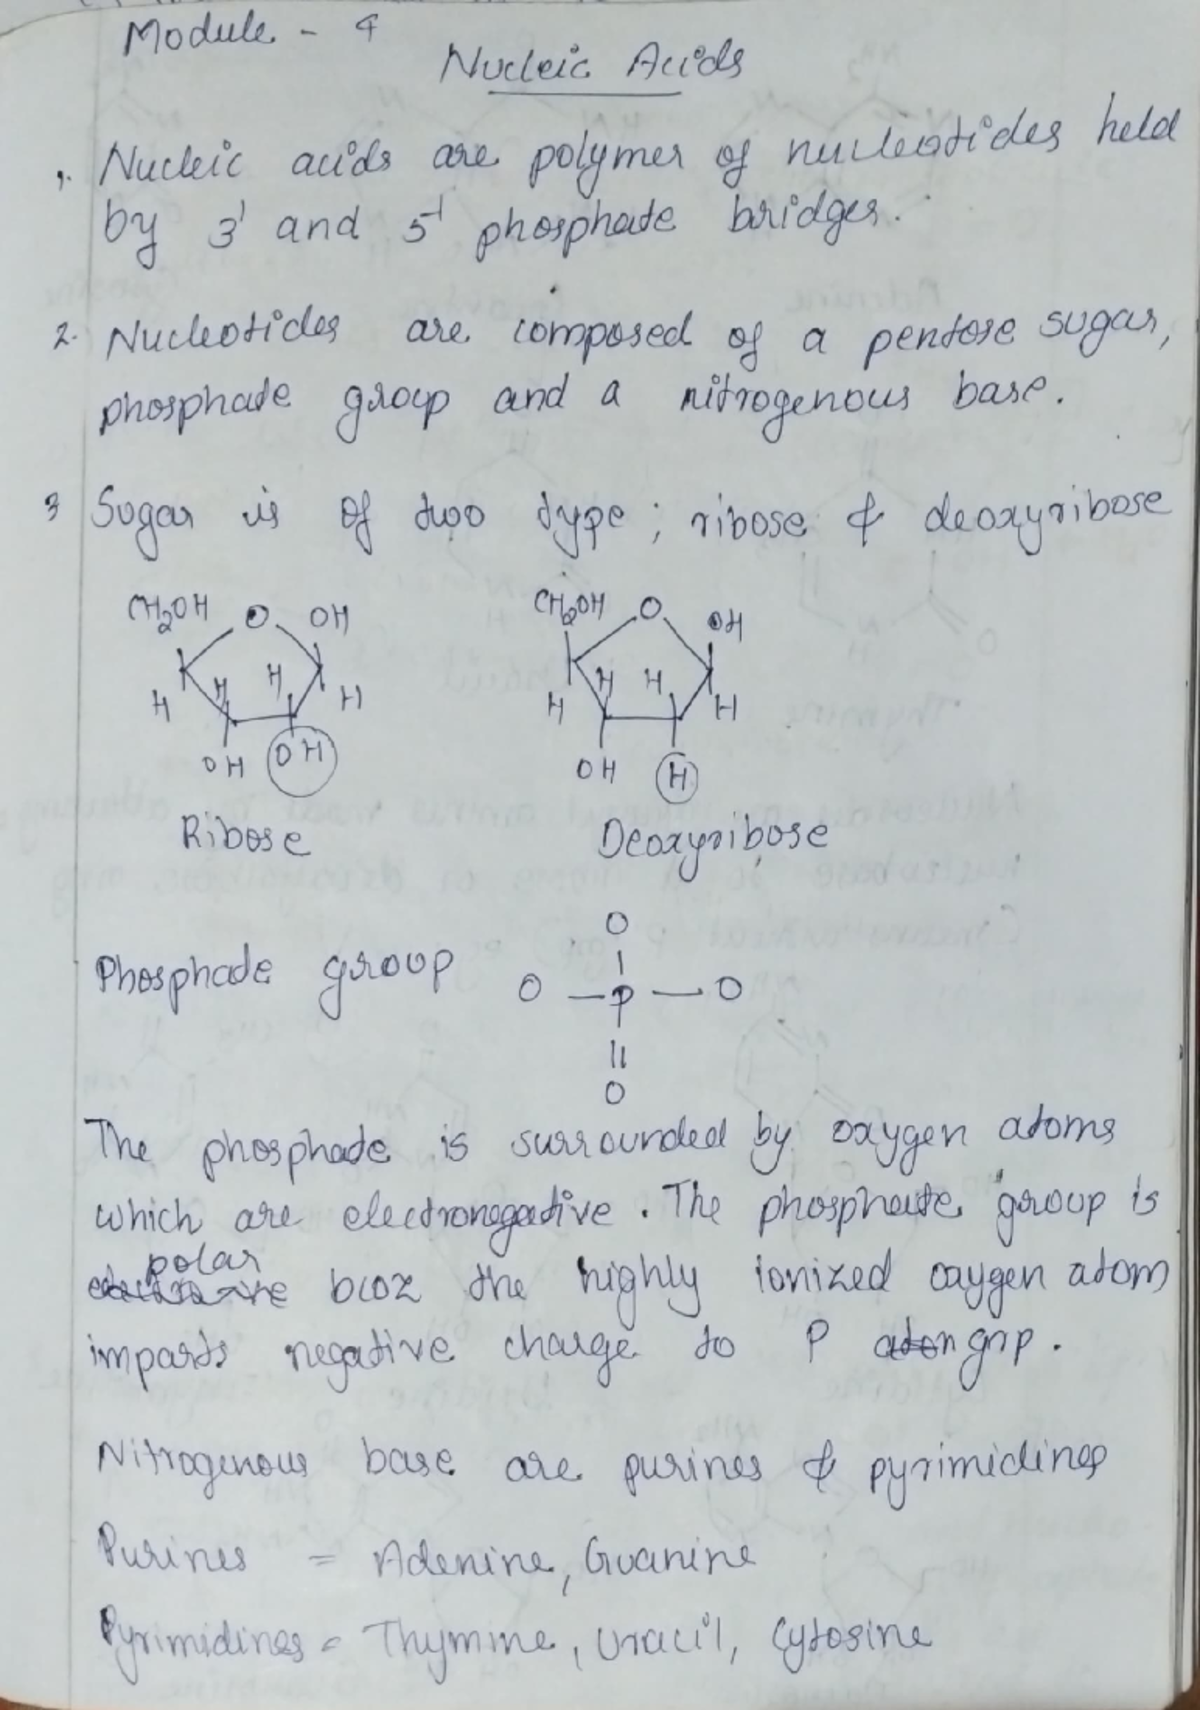 Module - 4
Nucleic Acids
1. Nucleic acids are polymer of nucleotides held
by 3' and 5' phosphate bridges.
2. Nucleotides are composed of a pentose sugar,
phosphate group and a nitrogenous base.
3 Sugar is of two type ; ribose & deoxyribose
CH2OH O OH CH2OH O OH
H H H H H H H H
OH OH OH H
Ribose Deoxyribose
O
Phosphate group O - P - O
||
O
The phosphate is surrounded by oxygen atoms
which are electronegative. The phosphate group is
polar
bcoz the highly ionized oxygen atom
imparts negative charge to P grp.
Nitrogenous base are purines & pyrimidines
Purines = Adenine, Guanine
Pyrimidines = Thymine, Uracil, Cytosine